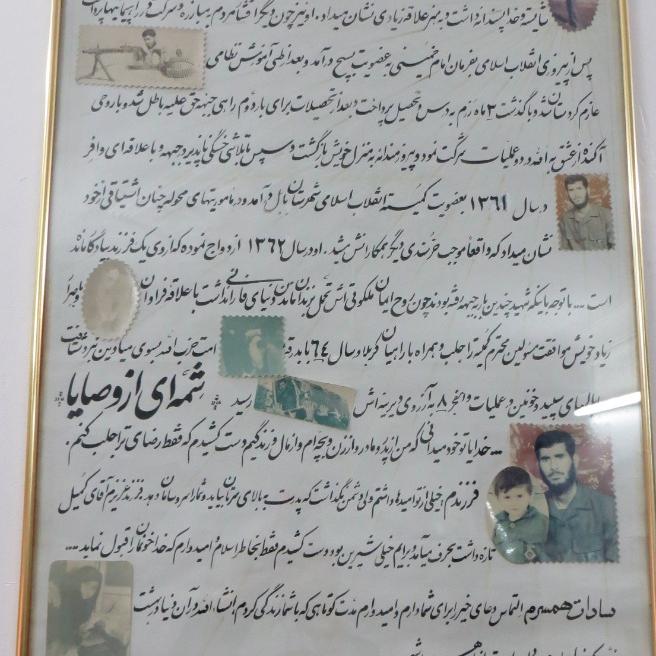 شایسته خدا پسندانه داشت و به هنر علاقه زیادی نشان میداد. او نیز چون دیگر اقشار مردم به مبارزه و شرکت در راهپیمائیها پرداخت
پس از پیروزی انقلاب اسلامی بفرمان امام خمینی به عضویت بسیج درآمد و بعد از طی آموزش نظامی
عازم کردستان شد و با گذشت ۳ ماه رزم به درس و تحصیل پرداخت و بعد از تحصیلات برای بار دوم راهی جبهه حق علیه باطل شد و با روحی
آکنده از عشق به الله در دو عملیات شرکت نمود و پیروزمندانه به منزل خویش بازگشت و سپس با تلاشی خستگی ناپذیر در جبهه و با علاقه ای وافر
در سال ۱۳۶۱ بعضویت کمیته انقلاب اسلامی شهرستان درآمد و در مأموریتهای محوله چنان اشتیاقی از خود
نشان میداد که واقعاً موجب خرسندی دیگر همکارانش میشد. او در سال ۱۳۶۲ ازدواج نموده که از وی یک فرزند بیادگار مانده
است... با توجه باینکه شهید چندین بار به جبهه رفته بودند چون روح ایمان ملکوتی اش تحمل بزندان ماندن دنیای فانی را نداشت با علاقه فراوان
زیاد خویش موافقت مسئولین محترم کمیته را جلب و همراه با راهیان کربلا در سال ٦٤ با بدرقه امت حزب الله بسوی میادین نبرد شتافت
و خونین در عملیات والفجر ۸ به آرزوی دیرینه اش رسید
شمه ای از وصایا
... خدایا تو خود میدانی که من از پدر و مادر و از زن و بچه ام و از مال و زندگیم دست کشیدم که فقط رضای تو را جلب کنم.
فرزندم، خیلی از تو امیدها داشتم ولی دشمن نگذاشت که پدرت به بالای سرتان بیاید و شما را سر و سامان دهد. فرزند عزیزم آقای کمیل
تازه داشت بحرف میآمد برایم خیلی شیرین بود و دست کشیدم فقط بخاطر اسلام و امیدوارم که خدا خونمان را قبول نماید...
سادات همسرم، التماس دعای خیر برای شما دارم و امیدوارم مدت کوتاهی که با شما زندگی کردم انشاء الله در آن دنیا در بهشت